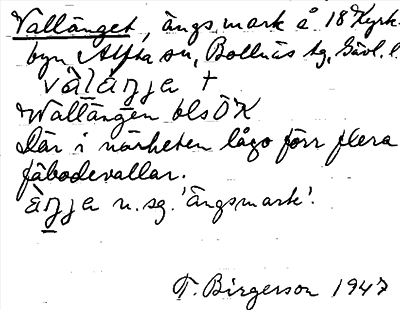 Vallänget, ängsmark å 18 Kyrk-
byn Alfta sn, Bollnäs tg, Gävl. l.
vàlàŋja †
Wallängen blsÖK
Där i närheten lågo förr flera
fäbodevallar.
àŋja n. sg. 'ängsmark'.
T. Birgerson 1947